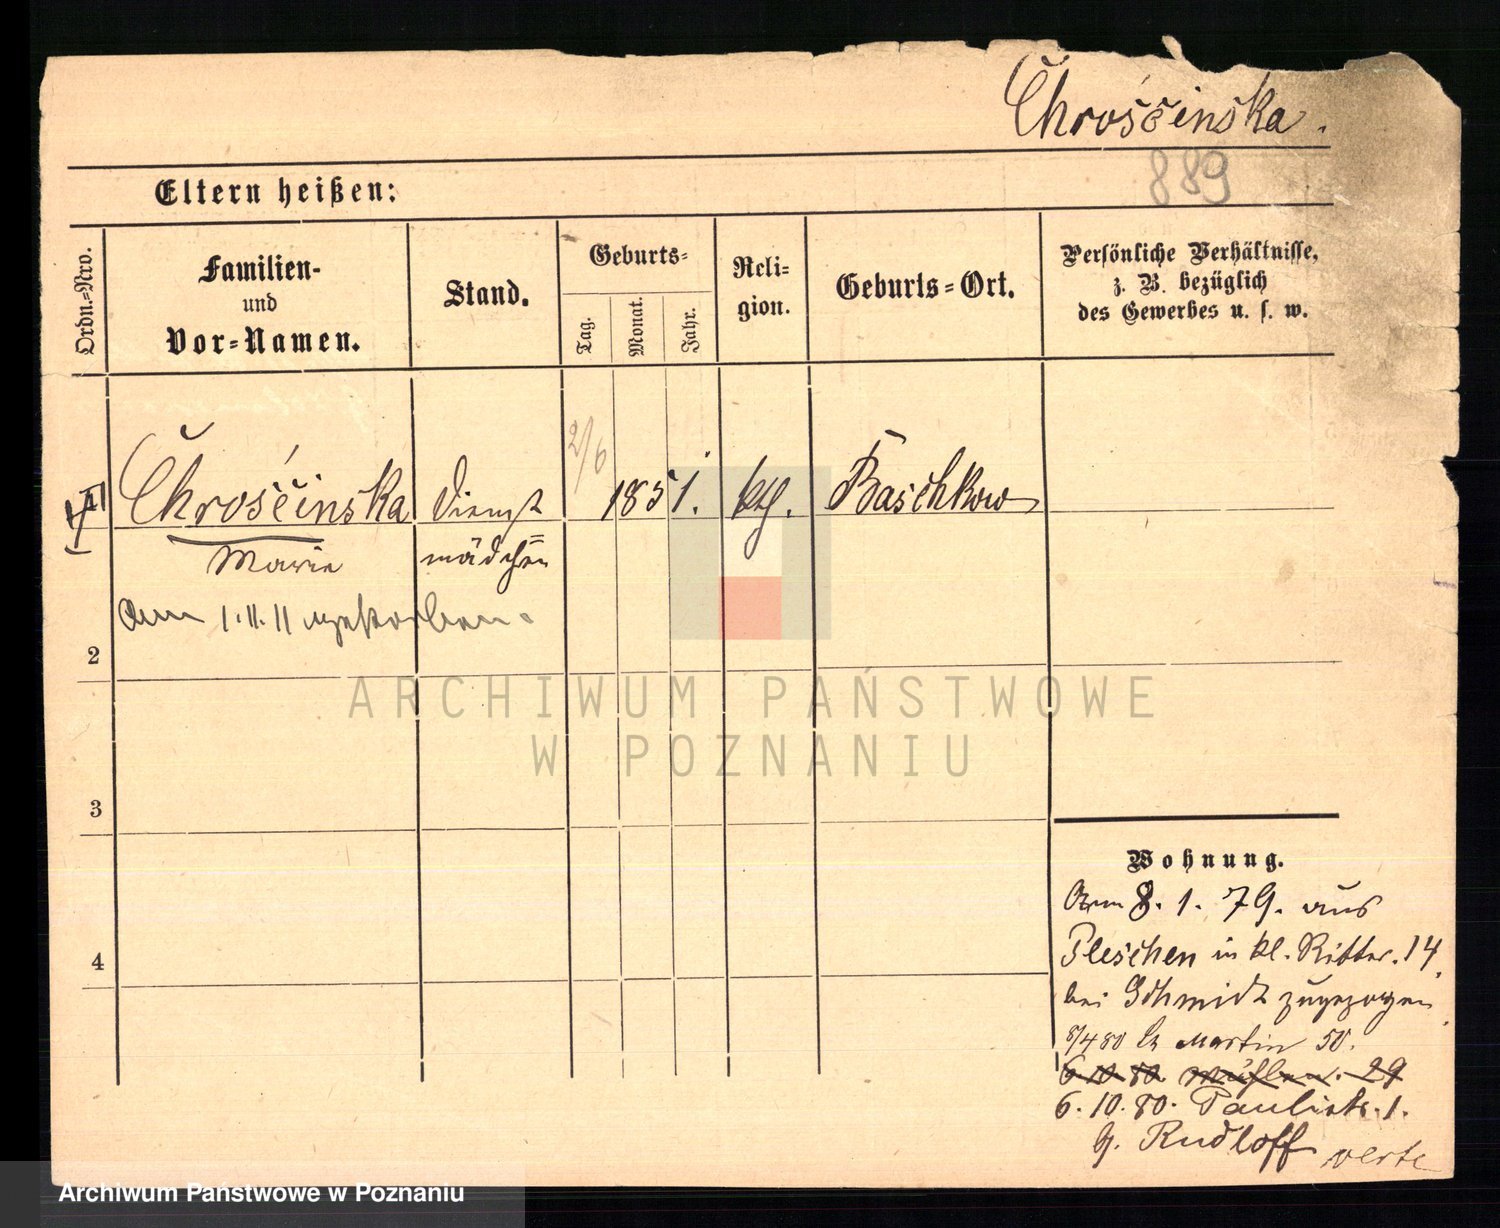 Chrośćinska.
889
Eltern heißen:
Ordn.=Nro.
Familien-
und
Vor=Namen.
Stand.
Geburts=
Tag.
Monat.
Jahr.
Reli=
gion.
Geburts=Ort.
Persönliche Verhältnisse,
z. B. bezüglich
des Gewerbes u. s. w.
1 Chrośćinska Dienst 2/6 1851. kth. Baschkow
Marie mädchen
am 1.11.11 gestorben.
2
3
4
Wohnung.
Am 8. 1. 79. aus
Pleschen in kl. Ritter. 14
bei Schmidt zugezogen
8/4 80 St Martin 50.
6 10 80 Mühlen. 29
6. 10. 80. Paulistr. 1.
b. Rudloff verte
ARCHIWUM PAŃSTWOWE
W POZNANIU
Archiwum Państwowe w Poznaniu